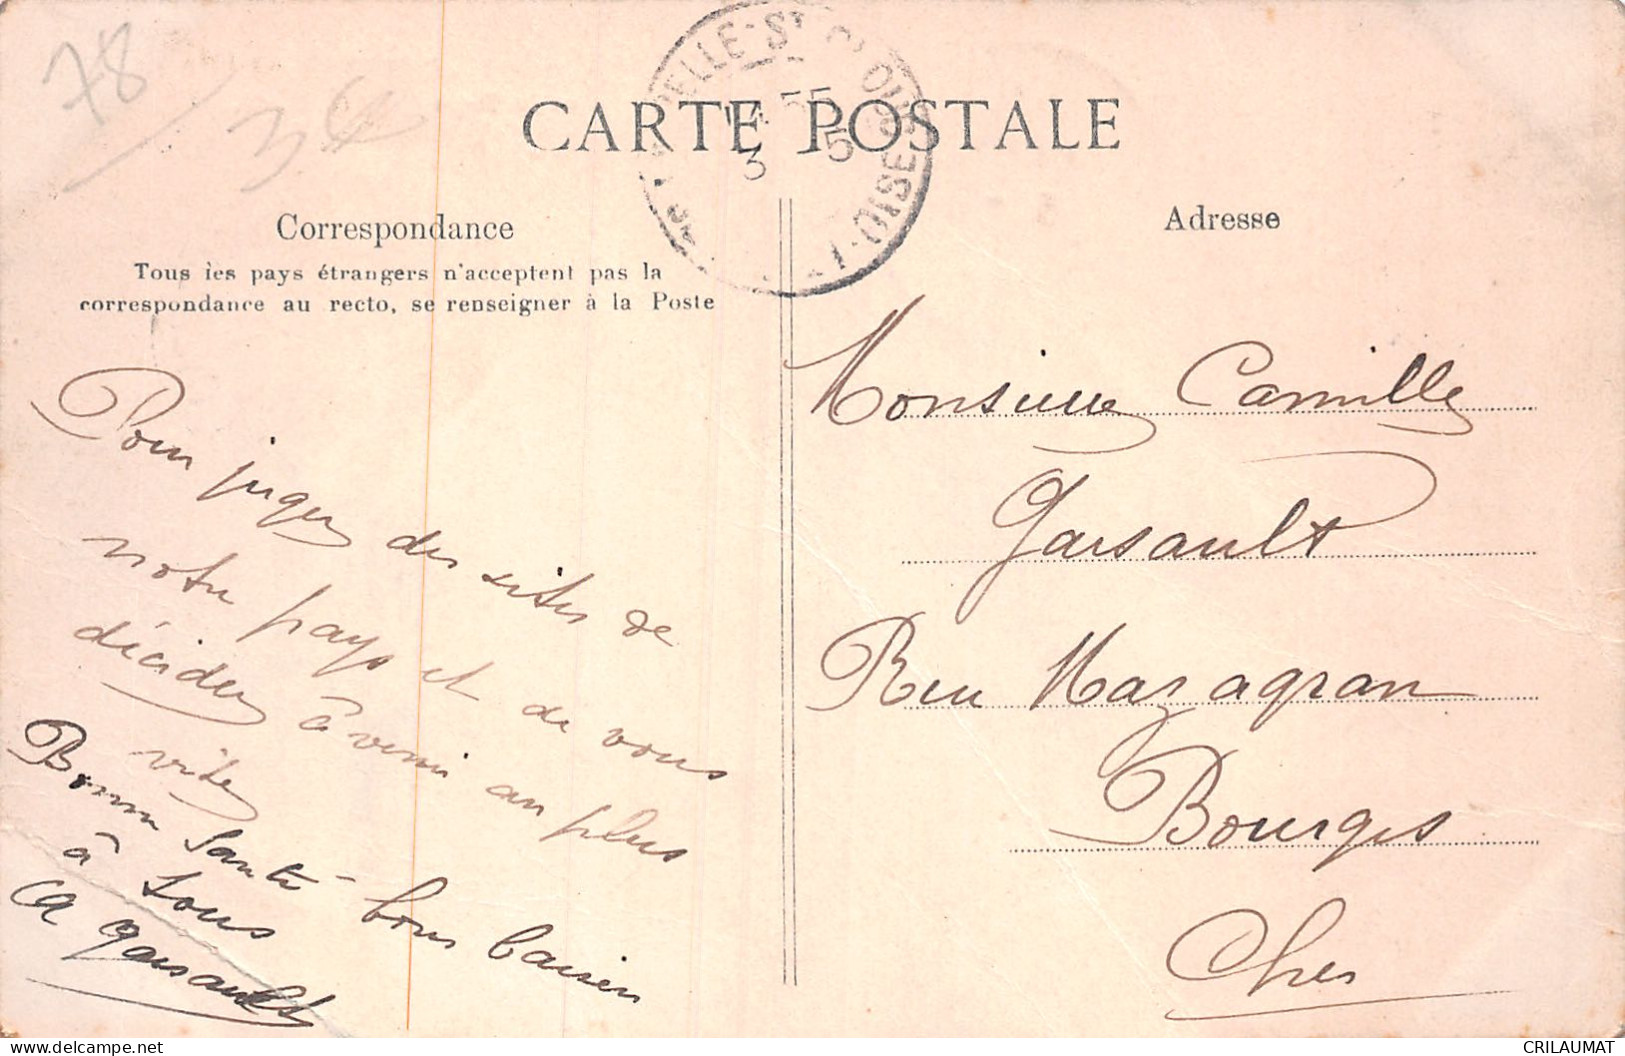 78
3
CARTE POSTALE
3 5
Correspondance
Tous les pays étrangers n'acceptent pas la
correspondance au recto, se renseigner à la Poste
Adresse
Monsieur Camille
Garsault
Rue Mazagran
Bourges
Cher
Pour juger des sites de
notre pays et de vous
décider à venir au plus
vite
Bonne santé - bons baisers
à tous
CA Garsault
CRILAUMAT